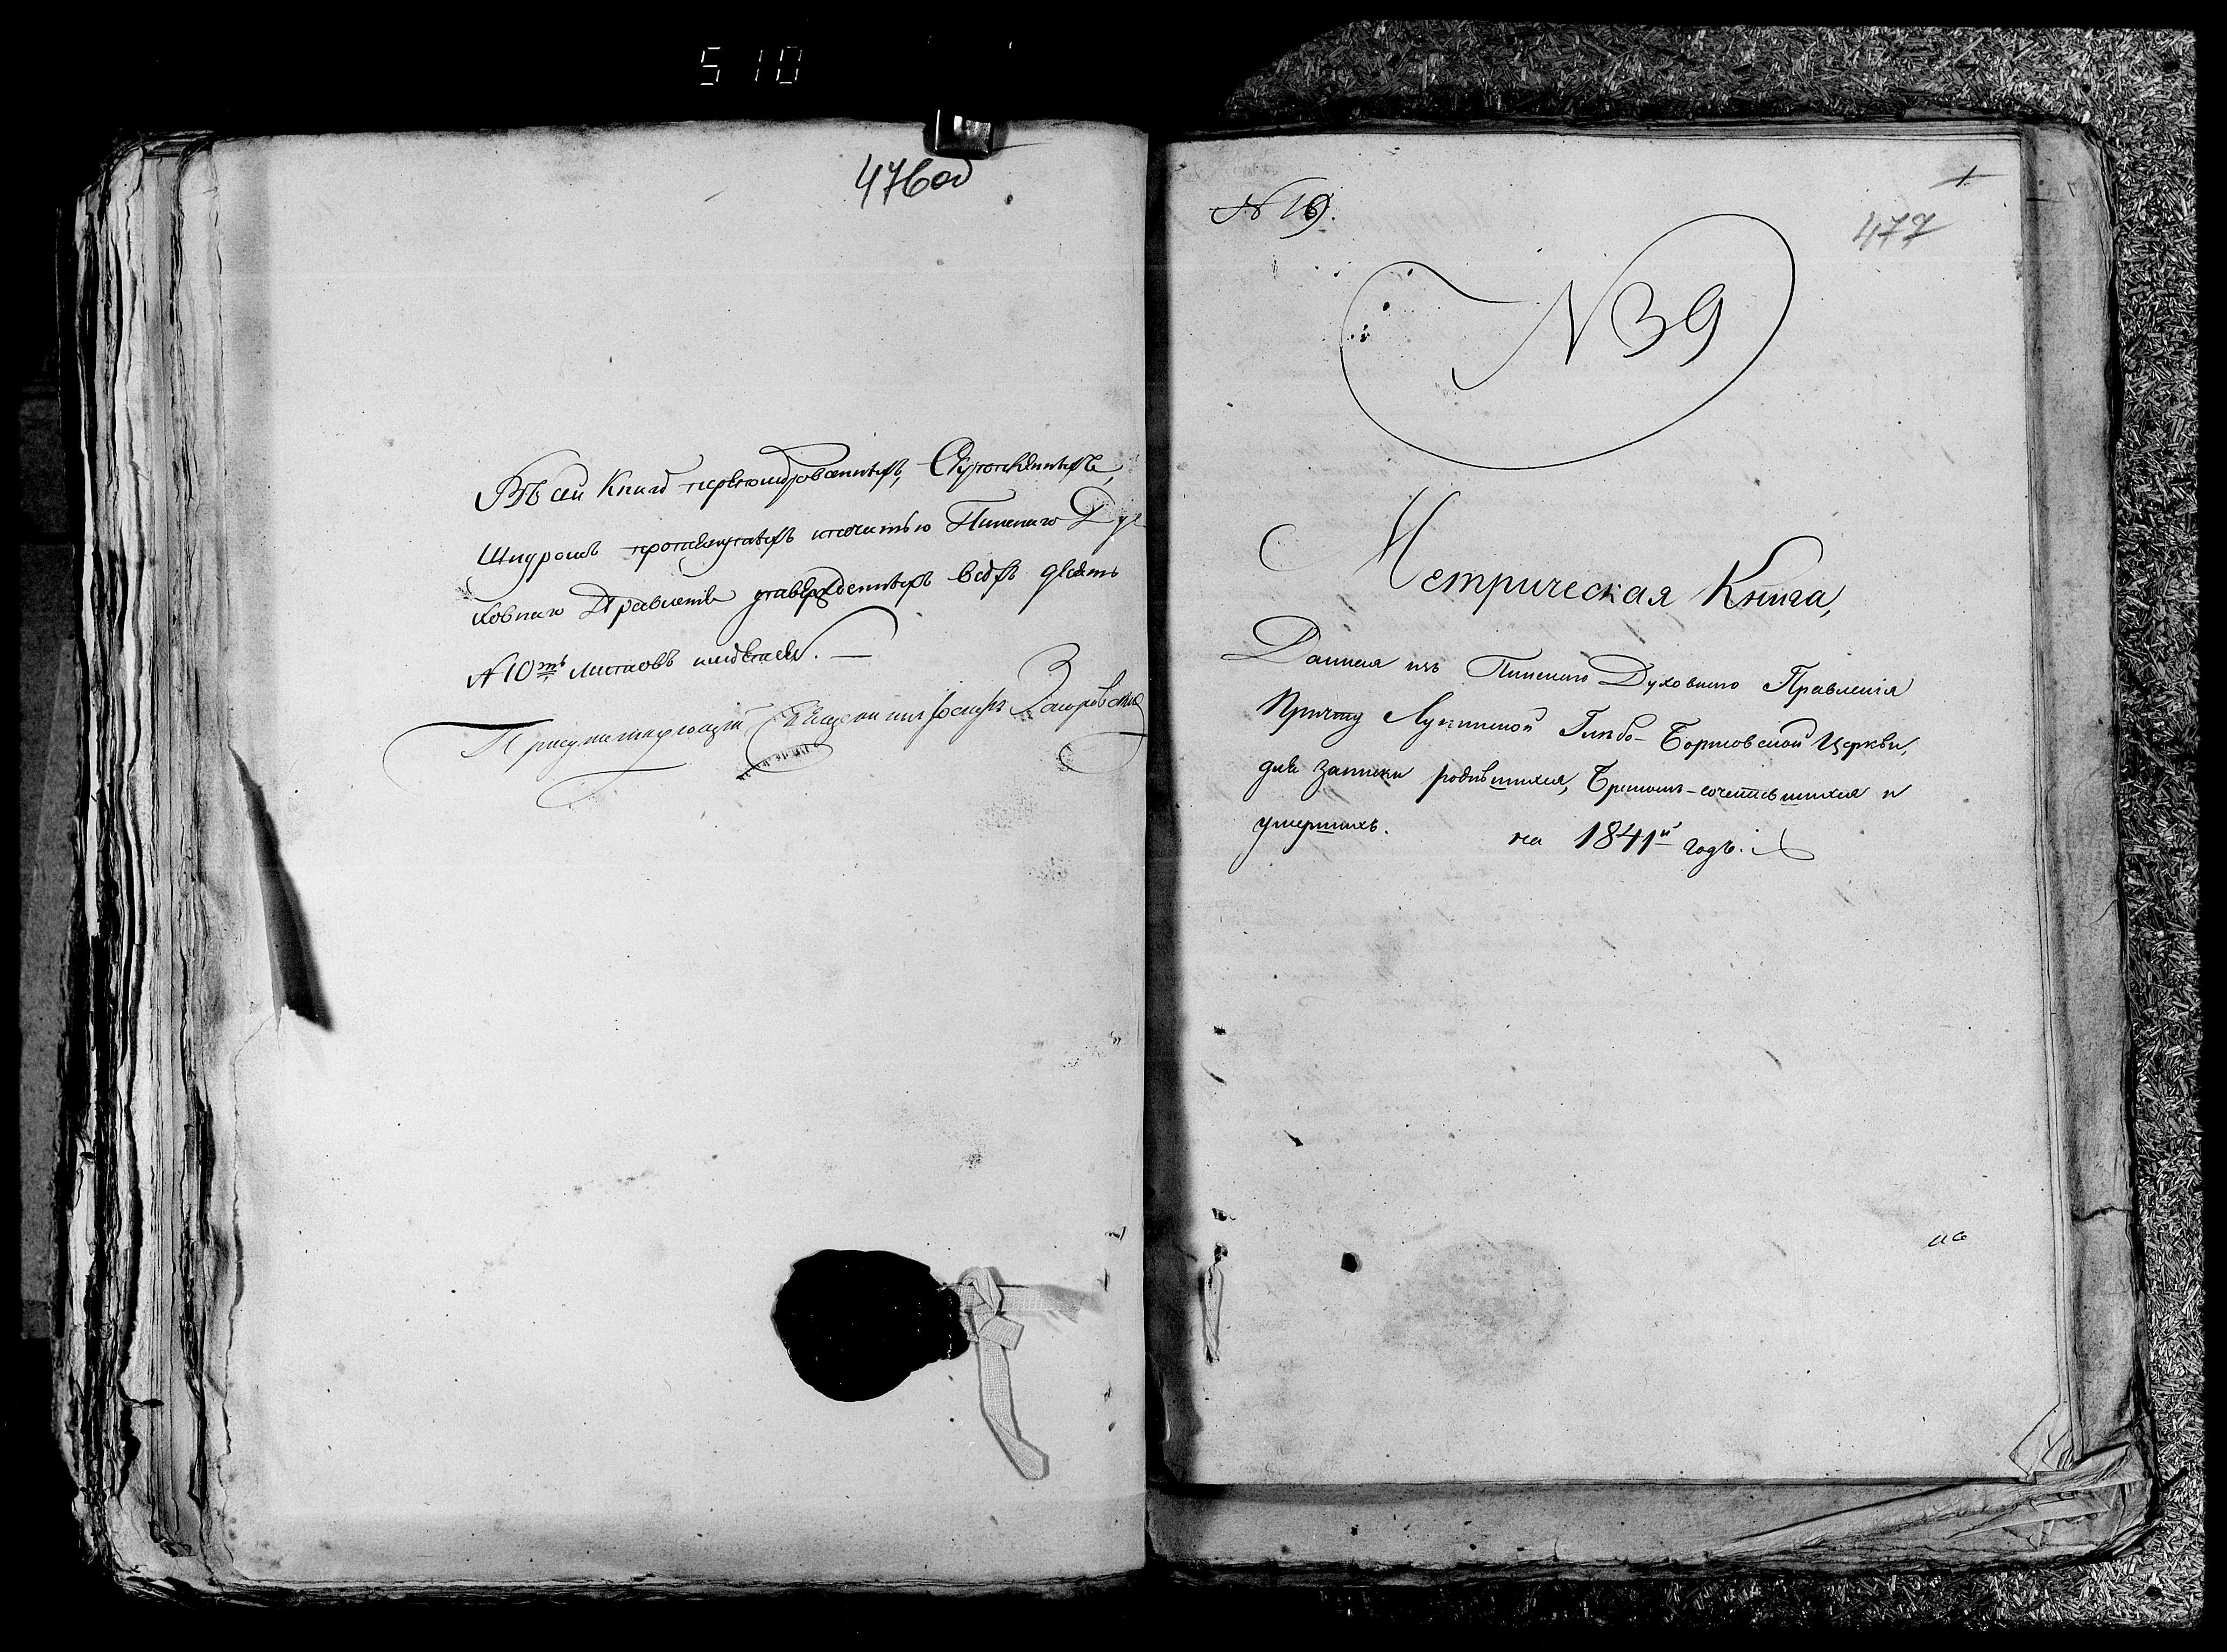 510
476об
Въ сей Книгѣ перенумерованныхъ, Скрепленныхъ,
Шнуромъ прошнурованныхъ печатью Пинскаго Ду
ховнаго Правленія утвержденныхъ всѣхъ
№10тъ листовъ
Присутствующій Священникъ Іосифъ
№ 19.
1.
477
N 39
Метрическая Книга,
Данная изъ Пинскаго Духовнаго Правленія
Причту Лунинской Глѣбо-Борисовской Церкви,
для записки родившихся, Бракомъ-сочетавшихся и
умершихъ. на 1841й годъ.